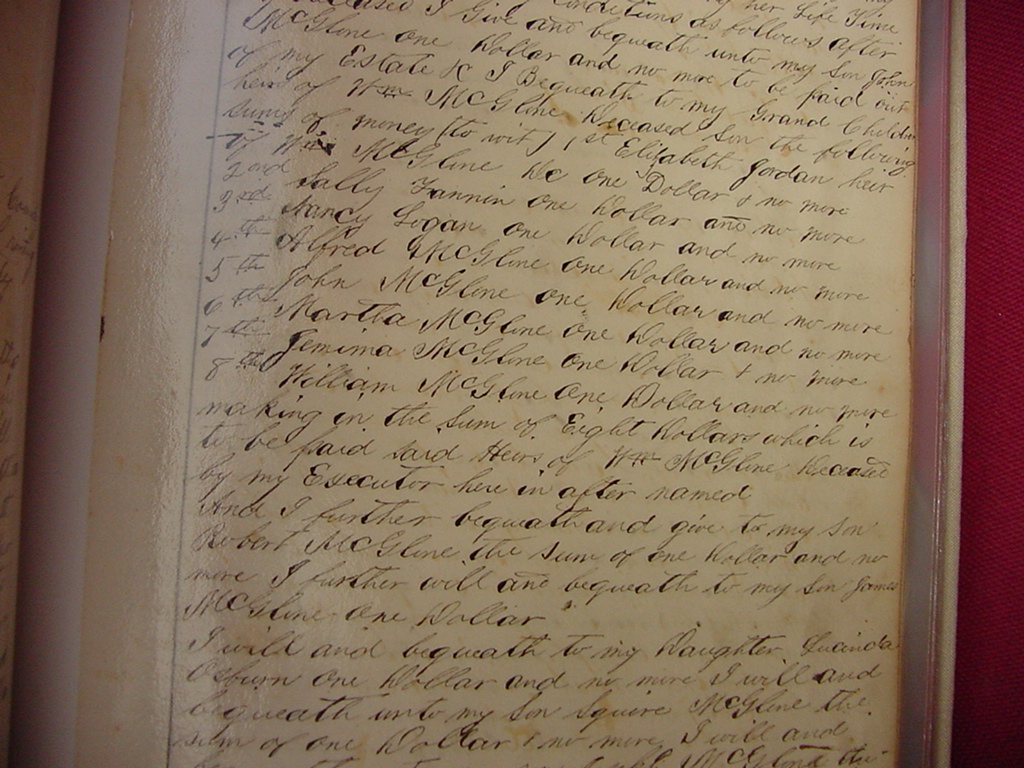 deceased I Give and Conditions as follows after
bequeath unto my Son John
McGlone one Dollar and no more to be paid out
of my Estate &c I Bequeath to my Grand Children
heirs of Wm McGlone Deceased Son the following
sums of money (to wit) 1st Elizabeth Jordan heir
of Wm McGlone De One Dollar & no more
2nd Sally Fannin one Dollar and no more
3rd Nancy Logan one Dollar and no more
4th Alfred McGlone One Dollar and no more
5th John McGlone one Dollar and no more
6th Martha McGlone one Dollar and no more
7th Jemima McGlone One Dollar & no more
8th William McGlone One Dollar and no more
making in the Sum of Eight Dollars which is
to be paid said Heirs of Wm McGlone Deceased
by my Executor here in after named
And I further bequeath and give to my Son
Robert McGlone the Sum of one Dollar and no
more I further will and bequeath to my Son James
McGlone One Dollar
I will and bequeath to my Daughter Lucinda
Osburn One Dollar and no more I will and
bequeath unto my Son Squire McGlone the
sum of one Dollar & no more, I will and
McGlone the